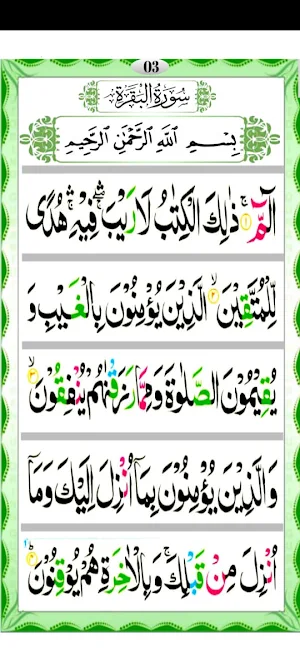 03
سُورَةُ الْبَقَرَةِ
بِسْمِ اللّٰهِ الرَّحْمٰنِ الرَّحِيْمِ
الٓمّٓ ۚ۝۱ ذٰلِكَ الْكِتٰبُ لَا رَيْبَ ۛۖ فِيْهِ ۛۚ هُدًى
لِّلْمُتَّقِيْنَ ۙ۝۲ الَّذِيْنَ يُؤْمِنُوْنَ بِالْغَيْبِ وَ
يُقِيْمُوْنَ الصَّلٰوةَ وَمِمَّا رَزَقْنٰهُمْ يُنْفِقُوْنَ ۙ۝۳
وَالَّذِيْنَ يُؤْمِنُوْنَ بِمَآ اُنْزِلَ اِلَيْكَ وَمَآ
اُنْزِلَ مِنْ قَبْلِكَ ۚ وَبِالْاٰخِرَةِ هُمْ يُوْقِنُوْنَ ؕ۝۴